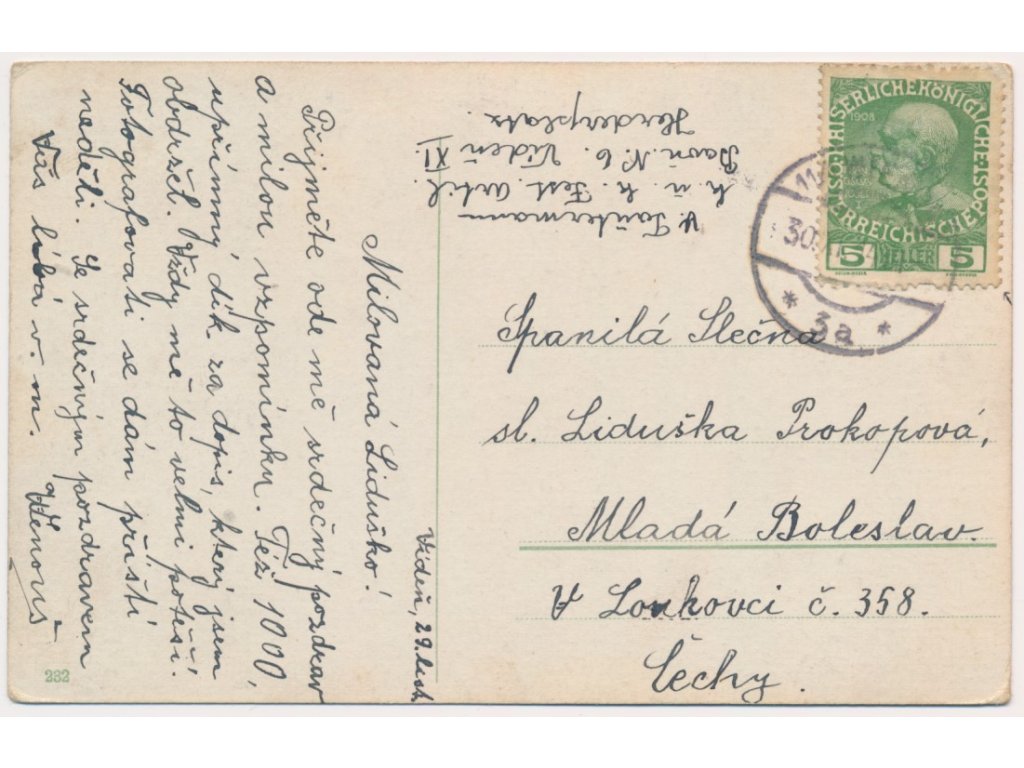 Vídeň, 29. list.
Milovaná Liduško!
Přijměte ode mě srdečný pozdrav
a milou vzpomínku. Též 1000
upřímný dík za dopis, který jsem
obdržel. Vždy mě to velmi potěší.
Fotografovati se dám příští
neděli. Se srdečným pozdravem
Váš líbá v. m.
V. Tautermann
k. u. k. Fest. Artil.
Baon. N. 6. Vídeň XI.
Herderplatz.
K. K. ÖSTERREICHISCHE POST
KAISERLICHE KÖNIGLICHE
1908
5 HELLER 5
11
30
* 3a *
Spanilá Slečna
sl. Liduška Prokopová,
Mladá Boleslav.
V Loukovci č. 358.
Čechy.
232